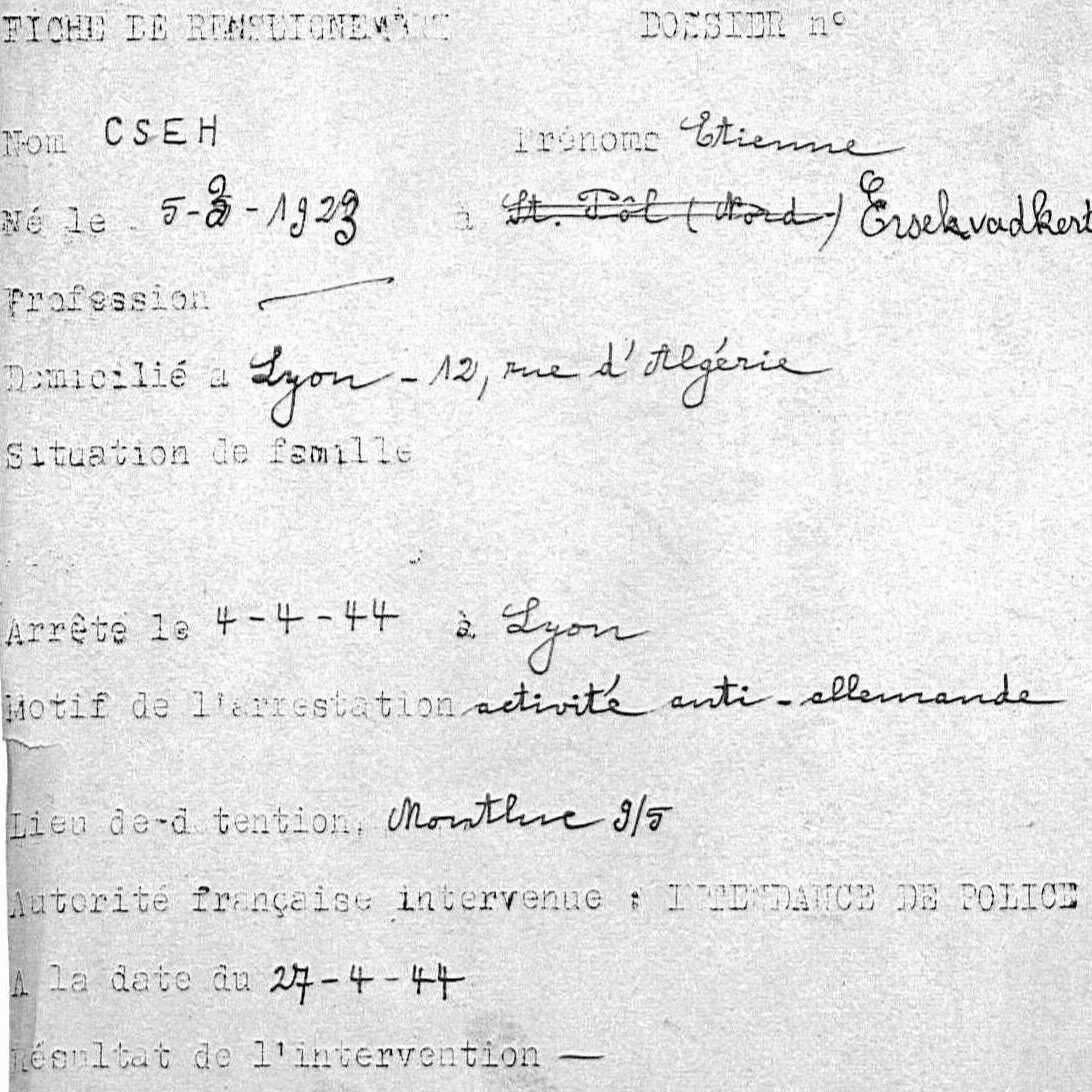 FICHE DE RENSEIGNEMENT DOSSIER n°
Nom CSEH Prénoms Etienne
Né le 5-3-1923 à St. Pôl (Nord) Ersekvadkert
Profession —
Domicilié à Lyon - 12, rue d'Algérie
Situation de famille
Arrête le 4-4-44 à Lyon
Motif de l'arrestation activité anti-allemande
Lieu de détention, Montluc 9/5
Autorité française intervenue : INTENDANCE DE POLICE
A la date du 27-4-44
Résultat de l'intervention —